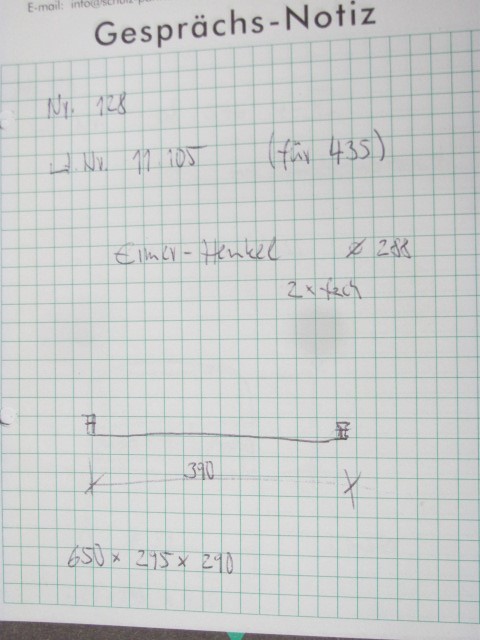 E-mail: info@scholz-p
Gesprächs-Notiz
Nr. 128
Nr. 11 105 (für 435)
Eimer-Henkel ⌀ 288
2x-fach
390
650 x 295 x 290